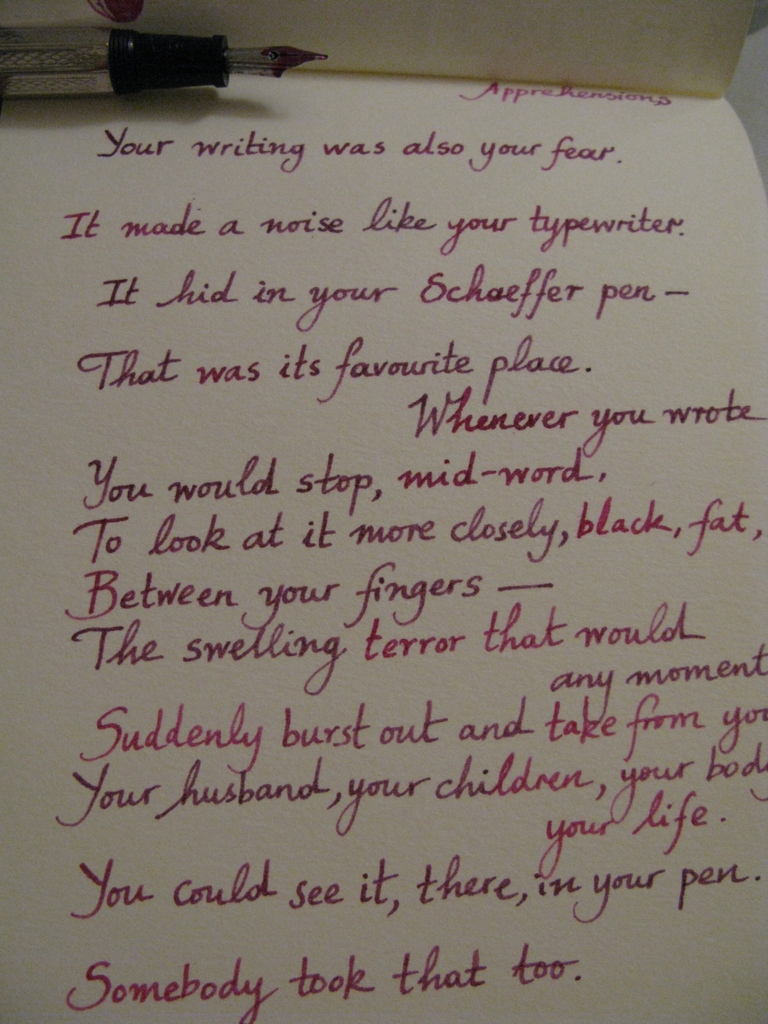 Apprehensions
Your writing was also your fear.
It made a noise like your typewriter.
It hid in your Schaeffer pen –
That was its favourite place.
Whenever you wrote
You would stop, mid-word.
To look at it more closely, black, fat,
Between your fingers —
The swelling terror that would
any moment
Suddenly burst out and take from you
Your husband, your children, your body,
your life.
You could see it, there, in your pen.
Somebody took that too.